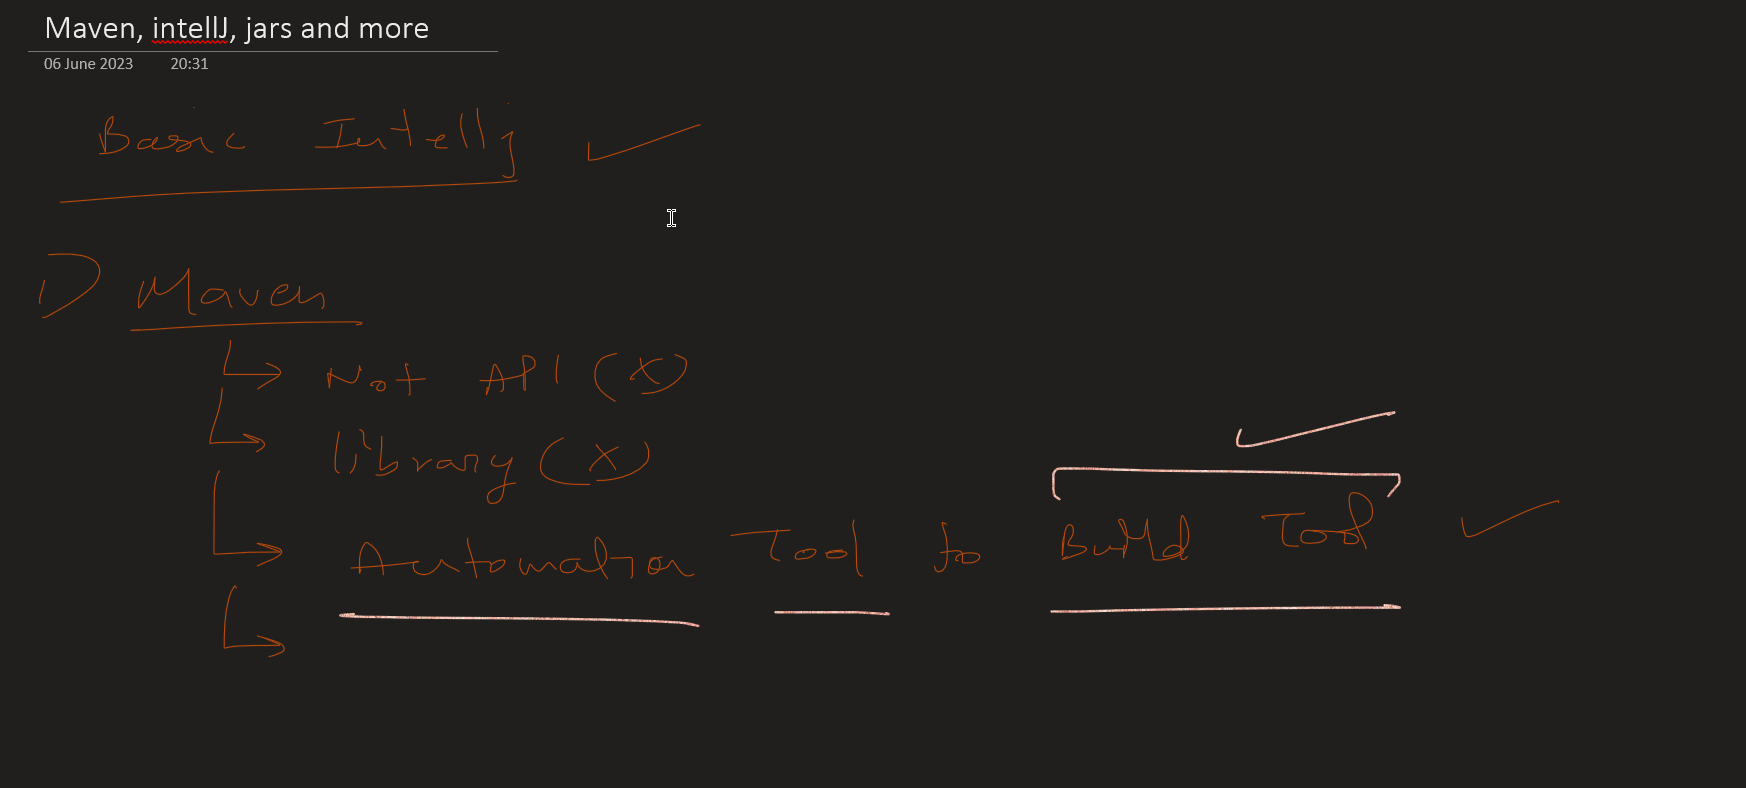 Maven, intellJ, jars and more
06 June 2023 20:31
Basic Intellj
1) Maven
Not API (x)
library (x)
Automation Tool to Build Tool